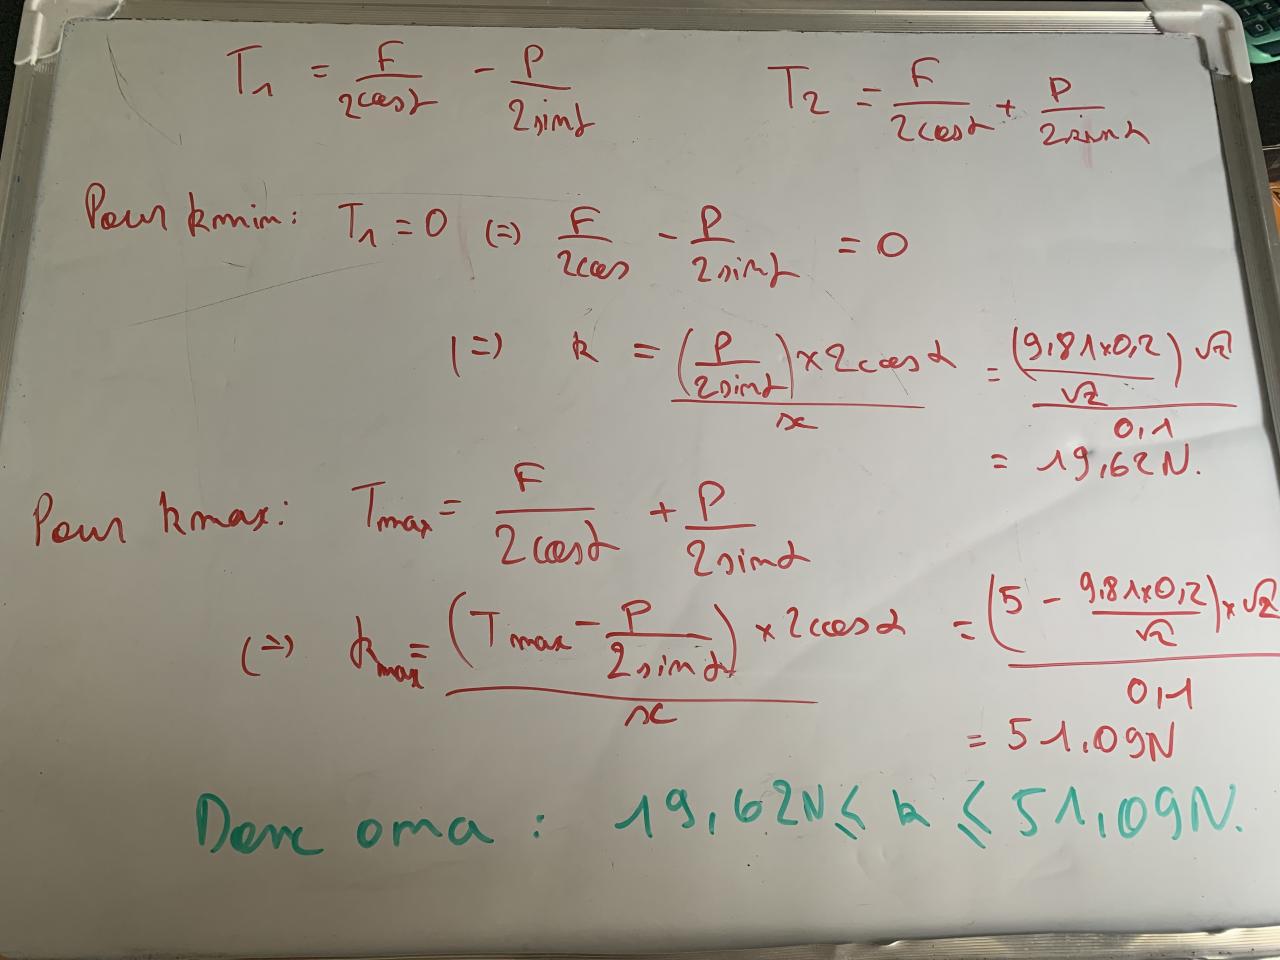 T₁ = F/(2cosα) - P/(2sinα)    T₂ = F/(2cosα) + P/(2sinα)
Pour kmin: T₁ = 0 (=) F/(2cos) - P/(2sinα) = 0
(=) k = ((P/(2sinα)) × 2cosα)/x = (((9,81×0,2)/√2) √2)/0,1
= 19,62N.
Pour kmax: Tmax = F/(2cosα) + P/(2sinα)
(=) kmax = ((Tmax - P/(2sinα)) × 2cosα)/x = ((5 - (9,81×0,2)/√2) × √2)/0,1
= 51,09N
Donc on a : 19,62N ≤ k ≤ 51,09N.